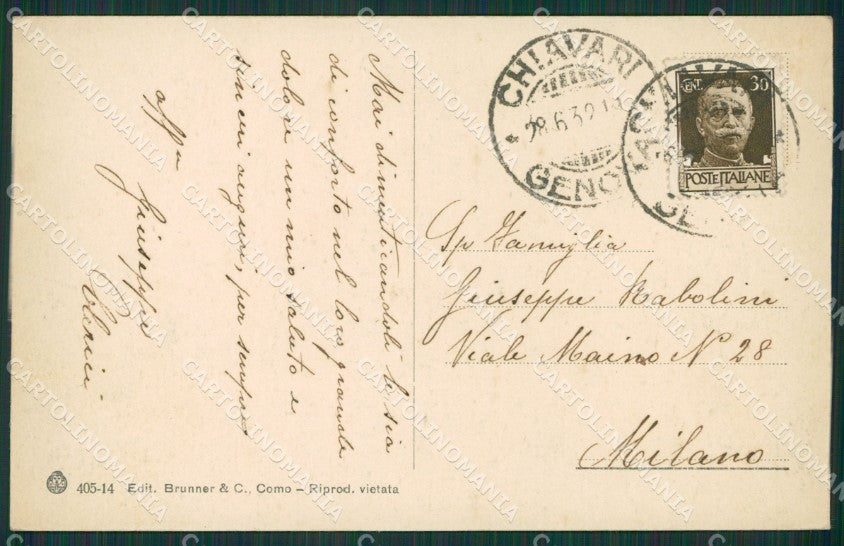 Mai dimenticandoli le sia
di conforto nel loro grande
dolore un mio saluto e
sinceri auguri, per sempre
affmo
Giuseppe
Clerici
CHIAVARI
28.6.39
GENOVA
CHIAVARI
GENOVA
CENT. 30
POSTE ITALIANE
Sp Famiglia
Giuseppe Rabolini
Viale Maino N 28
Milano
405-14 Edit. Brunner & C., Como - Riprod. vietata
CARTOLINOMANIA